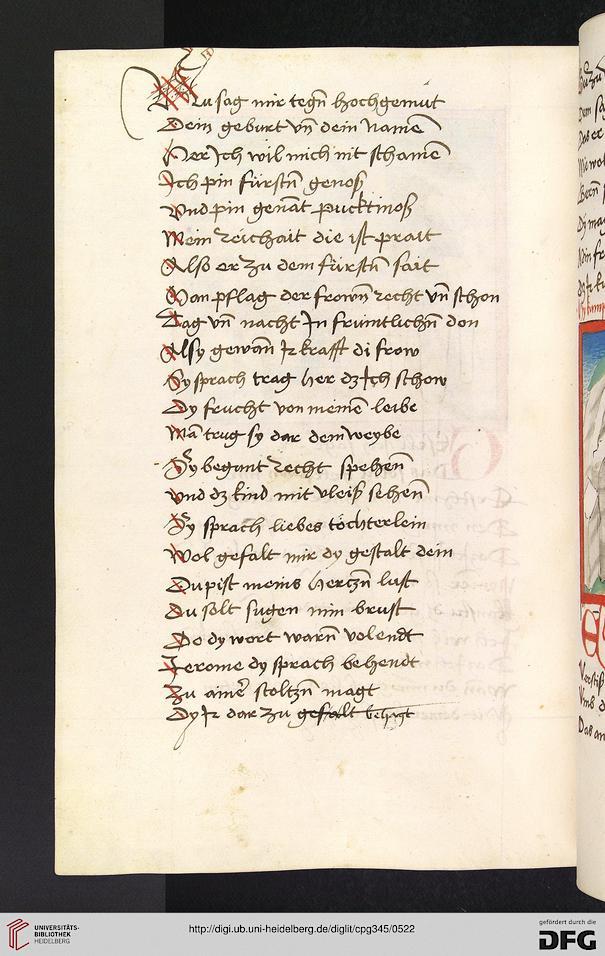 Nu sag mir tegñ hochgemut
Dein geburt vñ dein namē
Her Ich wil mich nit schamē
Ich pin fürstñ genoß
vnd pin genāt pucktinoß
Mein reichait die ist prait
Also er zu dem fürstñ sait
Man pflag der frowñ recht vñ schon
Tag vñ nacht In früntlichñ don
Alsy gewan̄ Ir krafft di frow
Sy sprach trag her dz Ich schow
Dy frucht von meinē leibe
Mā trug sy dar dem weybe
Sy begunt recht spehen̄
vnd dz kind mit vleiß sehen̄
Sy sprach liebes töchterlein
Wol gefalt mir dy gestalt dein
Du pist meins hertzñ lust
Du solt sugen min brust
Do dy wort warñ volendt
Jerome dy sprach behendt
Zu ainer stoltzñ magt
Dy Ir dar zu gefalt behagt
UNIVERSITÄTS-
BIBLIOTHEK
HEIDELBERG
http://digi.ub.uni-heidelberg.de/diglit/cpg345/0522
gefördert durch die
DFG